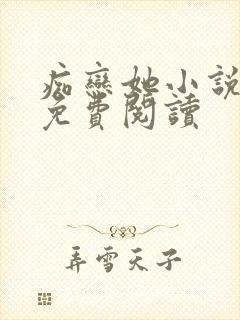 痴戀她小說
免費閱讀
弄雪天子